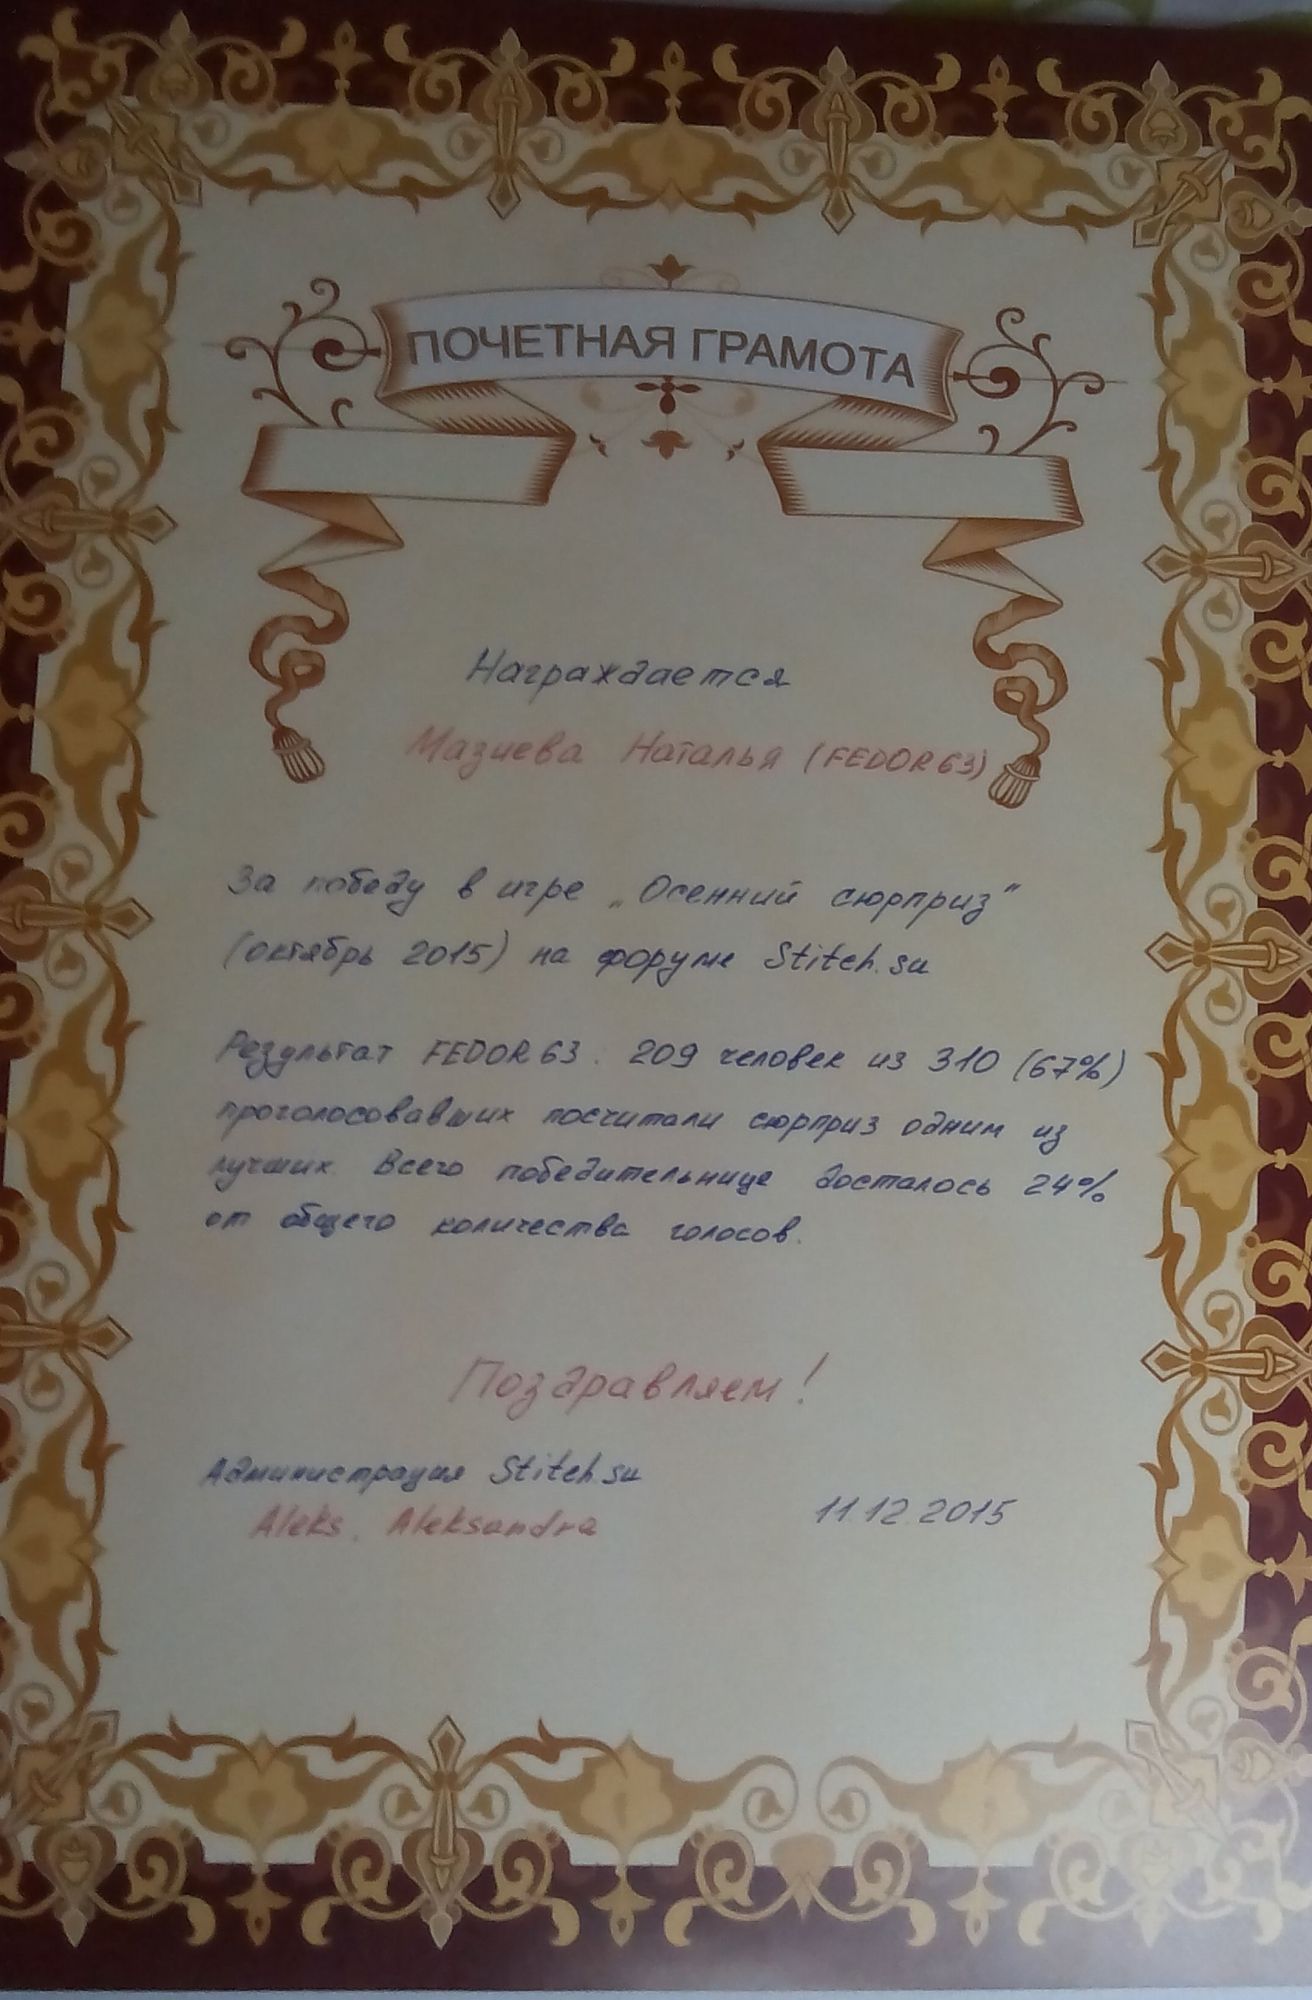 ПОЧЕТНАЯ ГРАМОТА
Награждается
Мазиева Наталья (FEDOR63)
За победу в игре „Осенний сюрприз"
(октябрь 2015) на форуме Stitch.su
Результат FEDOR63. 209 человек из 310 (67%)
проголосовавших посчитали сюрприз одним из
лучших. Всего победительнице досталось 24%
от общего количества голосов.
Поздравляем!
Администрация Stitch.su
Aleks, Aleksandra
11.12.2015